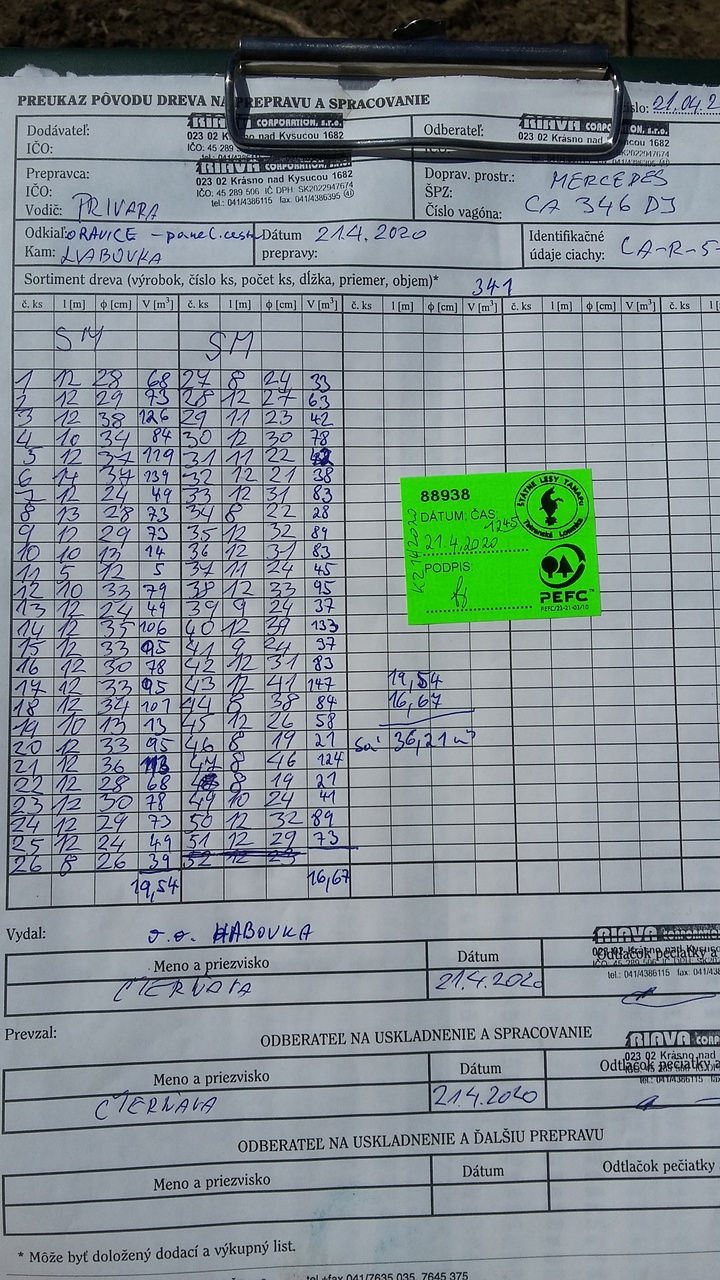 PREUKAZ PÔVODU DREVA NA PREPRAVU A SPRACOVANIE
21.04.2
Dodávateľ:
IČO:
RIAVA CORPORATION, s.r.o.
023 02 Krásno nad Kysucou 1682
Odberateľ:
RIAVA
023 02 Krásno nad
Prepravca:
IČO:
Vodič: PRIVARA
RIAVA CORPORATION, s.r.o.
023 02 Krásno nad Kysucou 1682
IČO: 45 289 506 IČ DPH: SK2022947674
tel.: 041/4386115 fax: 041/4386395
Doprav. prostr.: MERCEDES
ŠPZ:
Číslo vagóna: CA 346 DJ
Odkiaľ: ORAVICE - panel.cesta
Kam: HABOVKA
Dátum prepravy: 21.4.2020
Identifikačné údaje ciachy: CA-R-5
Sortiment dreva (výrobok, číslo ks, počet ks, dĺžka, priemer, objem)* 341
č. ks l [m] ϕ [cm] V [m³] č. ks l [m] ϕ [cm] V [m³] č. ks l [m] ϕ [cm] V [m³] č. ks l [m] ϕ [cm] V [m³] č. ks
SM SM
1 12 28 68 27 8 24 33
2 12 29 73 28 12 27 63
3 12 38 126 29 11 23 42
4 10 34 84 30 12 30 78
5 12 37 119 31 11 22
6 14 37 139 32 12 21 38
7 12 24 49 33 12 31 83
8 13 28 73 34 8 22 28
9 12 29 73 35 12 32 89
10 10 13 14 36 12 31 83
11 5 12 5 37 11 24 45
12 10 33 79 38 12 33 95
13 12 24 49 39 9 24 37
14 12 35 106 40 12 39 133
15 12 33 95 41 9 24 37
16 12 30 78 42 12 31 83
17 12 33 95 43 12 41 147
18 12 34 101 44 8 38 84
19 10 13 13 45 12 26 58
20 12 33 95 46 8 19 21
21 12 36 113 47 8 46 124
22 12 28 68 48 8 19 21
23 12 30 78 49 10 24 41
24 12 29 73 50 12 32 89
25 12 24 49 51 12 29 73
26 8 26 39 52 12 23
19,54 16,67
88938
DÁTUM, ČAS
1245
21.4.2020
PODPIS:
ŠTÁTNE LESY TANAPU
Tatranská Lomnica
PEFC™
PEFC/23-21-03/10
19,54
16,67
36,21 m³
Vydal: HABOVKA
Meno a priezvisko Dátum Odtlačok pečiatky a
ČTERNAVA 21.4.2020
RIAVA
Prevzal:
ODBERATEĽ NA USKLADNENIE A SPRACOVANIE
Meno a priezvisko Dátum Odtlačok pečiatky a
ČTERNAVA 21.4.2020
RIAVA CORP
023 02 Krásno nad
ODBERATEĽ NA USKLADNENIE A ĎALŠIU PREPRAVU
Meno a priezvisko Dátum Odtlačok pečiatky
* Môže byť doložený dodací a výkupný list.
tel.+fax 041/7635 035, 7645 375